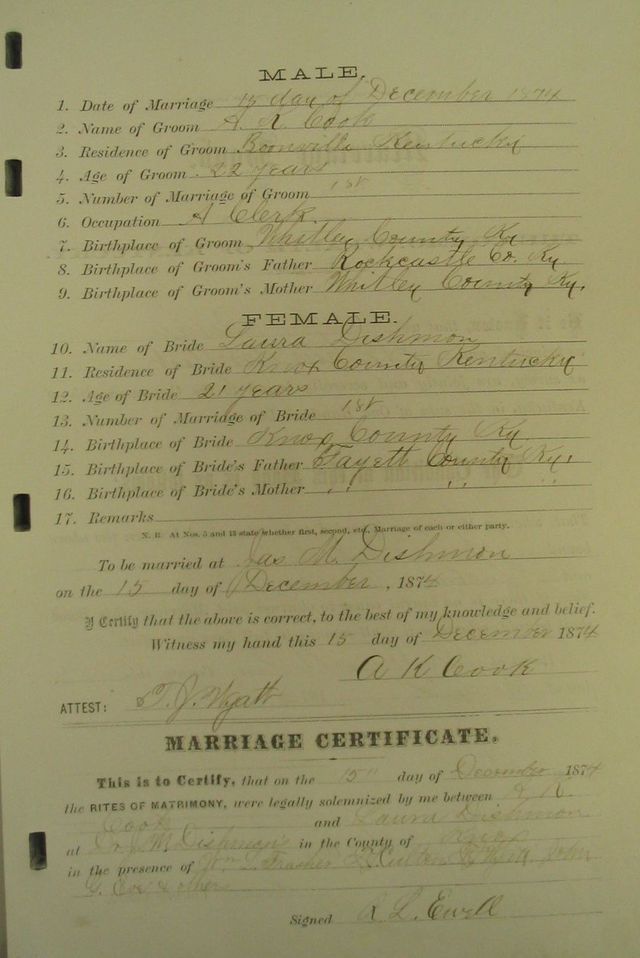 MALE.
1. Date of Marriage 15 day of December 1874
2. Name of Groom A. K. Cook
3. Residence of Groom Boonville Kentucky
4. Age of Groom 22 years
5. Number of Marriage of Groom 1st
6. Occupation A Clerk
7. Birthplace of Groom Whitley County Ky
8. Birthplace of Groom's Father Rockcastle Co. Ky.
9. Birthplace of Groom's Mother Whitley County Ky.
FEMALE.
10. Name of Bride Laura Dishmon
11. Residence of Bride Knox County Kentucky
12. Age of Bride 21 years
13. Number of Marriage of Bride 1st
14. Birthplace of Bride Knox County Ky
15. Birthplace of Bride's Father Fayett County Ky.
16. Birthplace of Bride's Mother " " "
17. Remarks
N. B. At Nos. 5 and 13 state whether first, second, etc., Marriage of each or either party.
To be married at Jas M. Dishmon
on the 15 day of December, 1874
I Certify that the above is correct, to the best of my knowledge and belief.
Witness my hand this 15 day of December 1874
A K Cook
ATTEST: T. J. Wyatt
MARRIAGE CERTIFICATE.
This is to Certify, that on the 15" day of December 1874
the RITES OF MATRIMONY, were legally solemnized by me between K.
Cook and Laura Dishmon
at M Dishmon's in the County of Knox
in the presence of Wm L. Frasher John
G. & others
Signed R L. Ewell